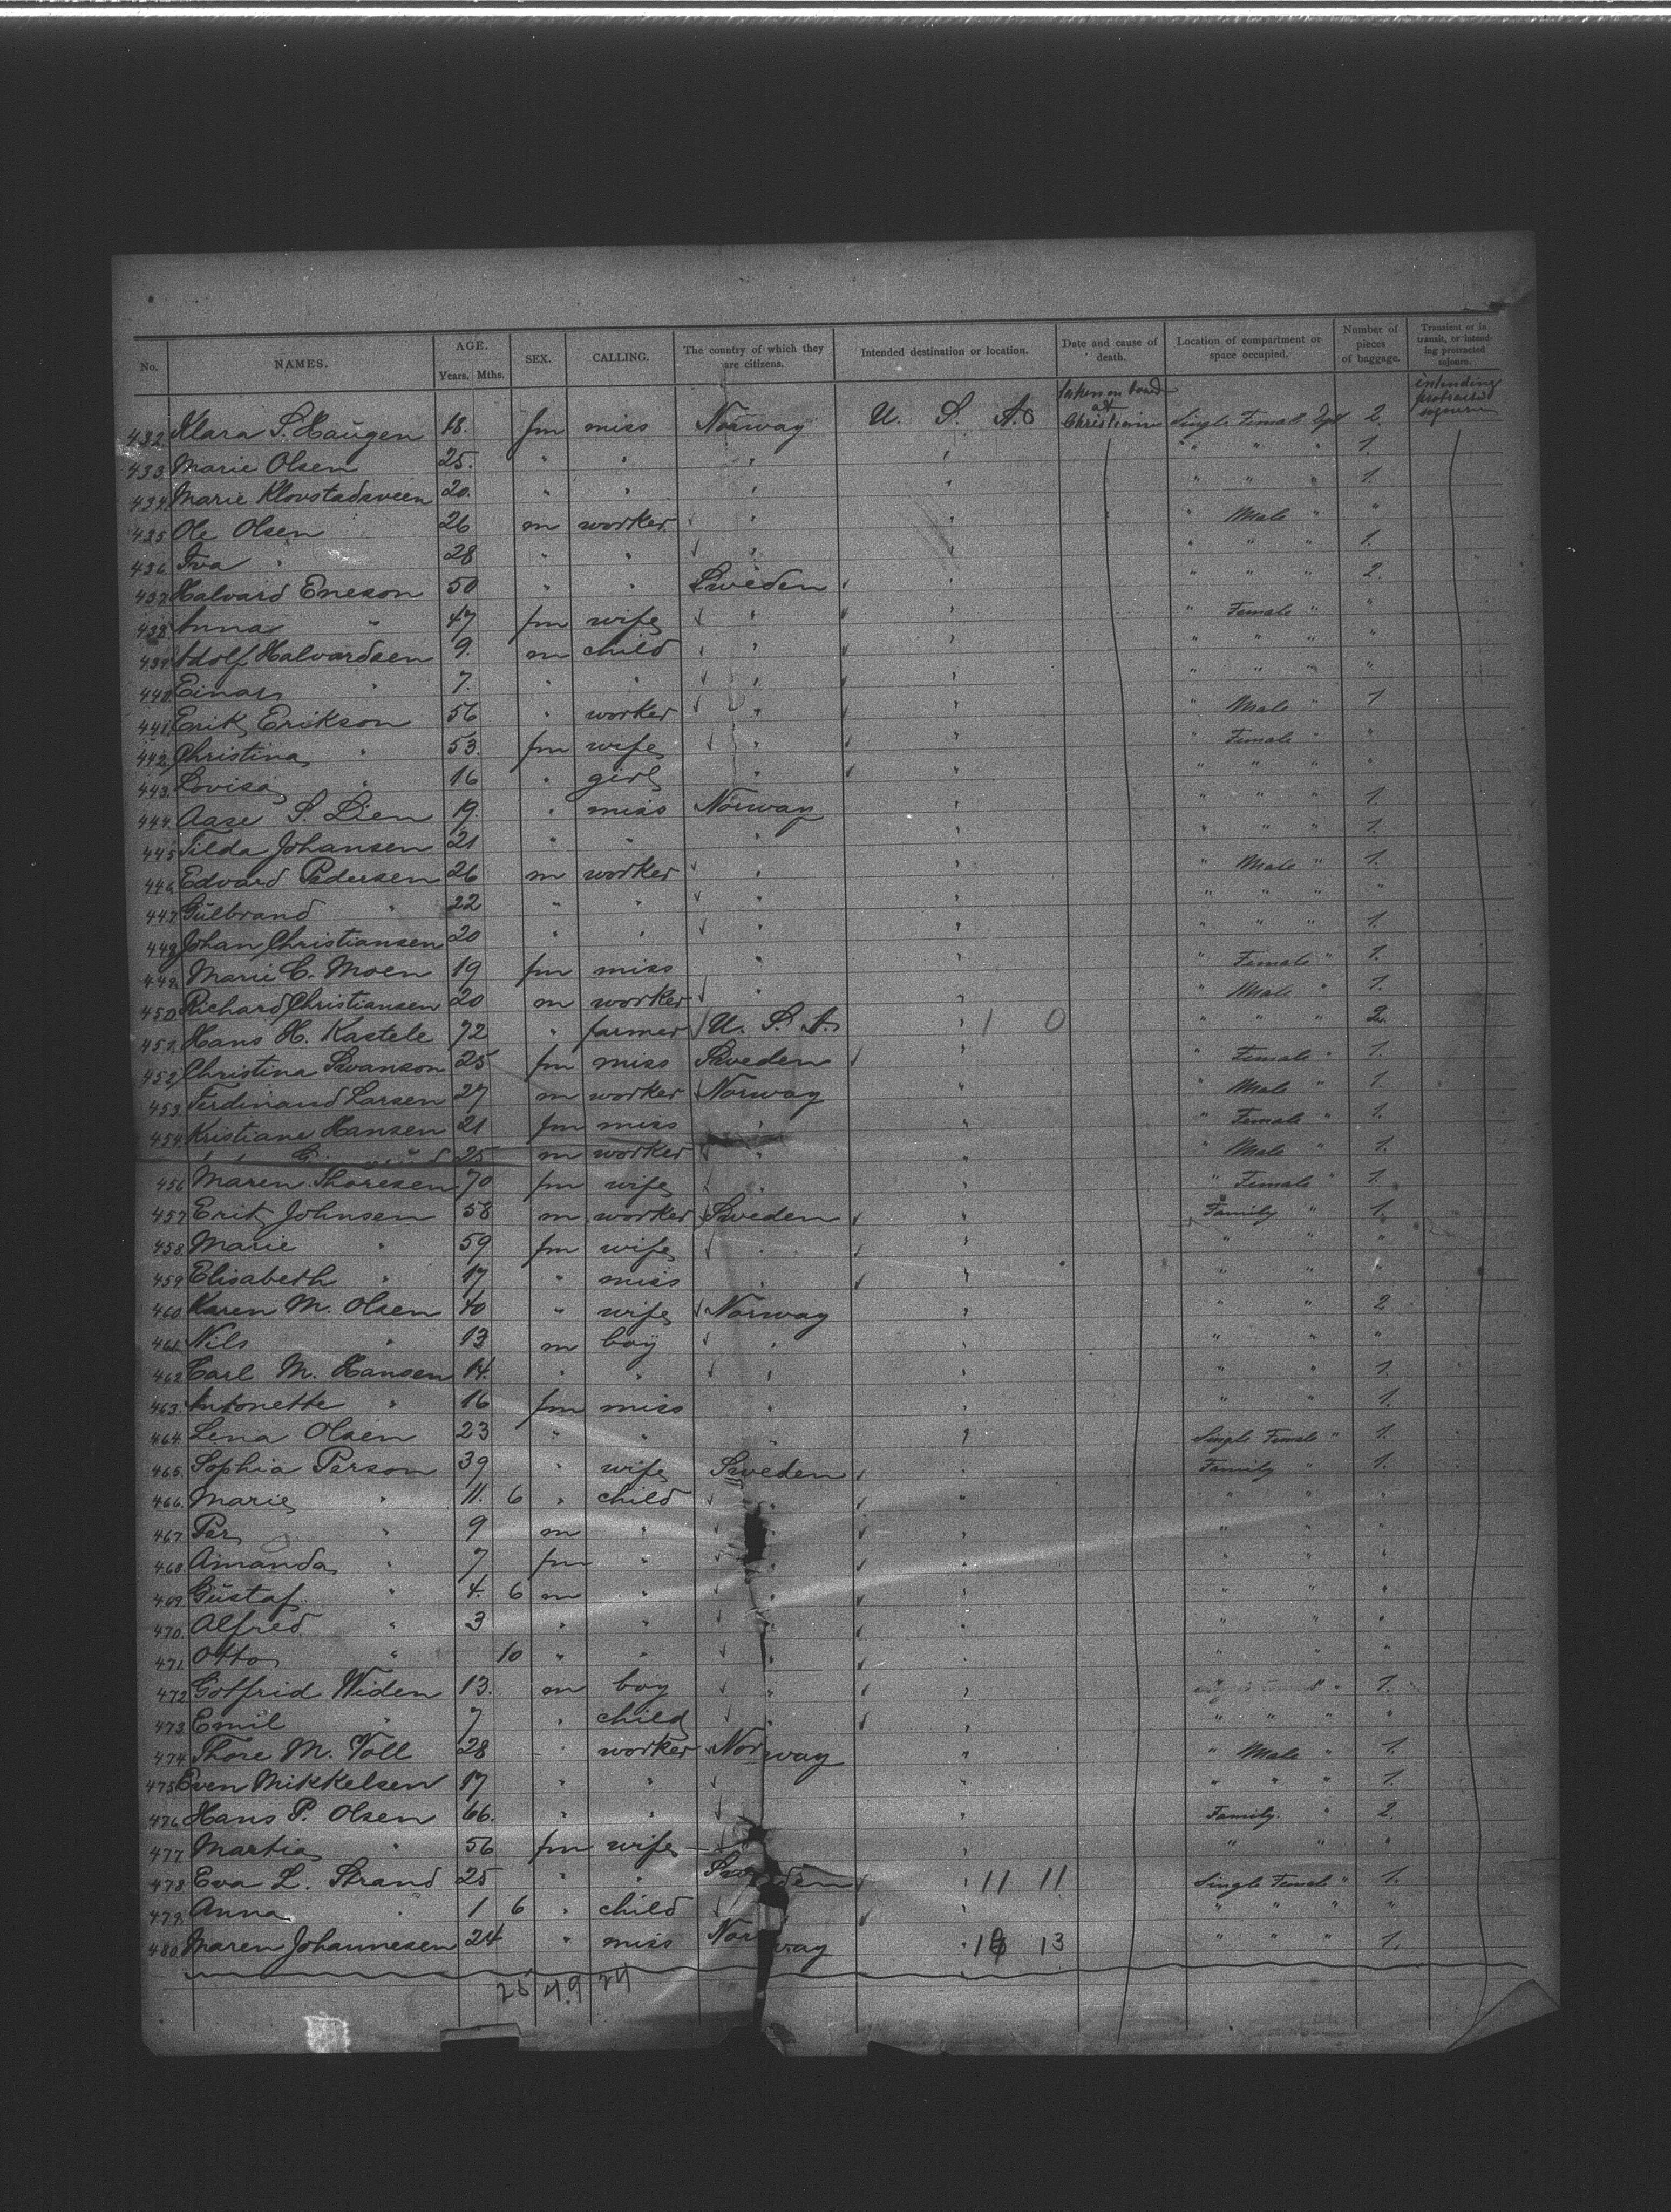 No. NAMES. AGE. Years. Mths. SEX. CALLING. The country of which they are citizens. Intended destination or location. Date and cause of death. Location of compartment or space occupied. Number of pieces of baggage. Transient or in transit, or intending protracted sojourn.
taken on board at Christiania intending protracted sojourn
432. Klara S. Haugen 18. fm miss Norway U. S. A. Single Female Dpt 2.
433. Marie Olsen 25. " " " " " " " 1.
434. Marie Klovstadsveen 20. " " " " " " " 1.
435. Ole Olsen 26 m worker " " " Male " "
436. Iva " 28 " " " " " " " 1.
437. Halvard Eneson 50 " " Sweden " " " " 2.
438. Anna " 47 fm wife " " " Female " "
439. Adolf Halvardsen 9. m child " " " " " "
440. Einar " 7. " " " " " " " "
441. Erik Erikson 56 " worker " " " Male " 1
442. Christina " 53. fm wife " " " Female " "
443. Lovisa " 16 " girl " " " " " "
444. Aase S. Lien 19. " miss Norway " " " " 1.
445. Tilda Johansen 21 " " " " " " " 1.
446. Edvard Pedersen 26 m worker " " " Male " 1.
447. Gülbrand " 22 " " " " " " " "
448. Johan Christiansen 20 " " " " " " " 1.
449. Marie C. Moen 19 fm miss " " " Female " 1.
450. Richard Christiansen 20 m worker " " " Male " 1.
451. Hans H. Kastele 72 " farmer U. S. A. " 1 0 " " " 2.
452. Christina Swanson 25 fm miss Sweden " " Female " 1.
453. Ferdinand Larsen 27 m worker Norway " " Male " 1.
454. Kristiane Hansen 21 fm miss " " " Female " 1.
25 m worker " " " Male " 1.
456. Maren Thoresen 70 fm wife " " " Female " 1.
457. Erik Johnsen 58 m worker Sweden " Family " 1.
458. Marie " 59 fm wife " " " " "
459. Elisabeth " 17 " miss " " " " "
460. Karen M. Olsen 40 " wife Norway " " " 2
461. Nils " 13 m boy " " " " "
462. Carl M. Hansen 14. " " " " " " 1.
463. Antonette " 16 fm miss " " " " 1.
464. Lena Olsen 23 " " " " Single Female " 1.
465. Sophia Person 39 " wife Sweden " Family " 1.
466. Marie " 11. 6 " child " " " " "
467. Per " 9 m " " " " " "
468. Amanda " 7 fm " " " " " "
469. Güstaf " 4. 6 m " " " " " "
470. Alfred " 3 " " " " " " "
471. Otto " 10 " " " " " " "
472. Gotfrid Widen 13. m boy " " " 1.
473. Emil " 7 " child " " " " " "
474. Thore M. Voll 28 " worker Norway " " Male " 1.
475. Even Mikkelsen 17 " " " " " " 1.
476. Hans P. Olsen 66. " " " Family " 2.
477. Martia " 56 fm wife " " " "
478. Eva L. Strand 25 " " Sweden " 11 11 Single Female " 1.
479. Anna " 1 6 " child " " " " "
480. Maren Johannesen 24 " miss Norway " 13 " " " 1.
25 49 24